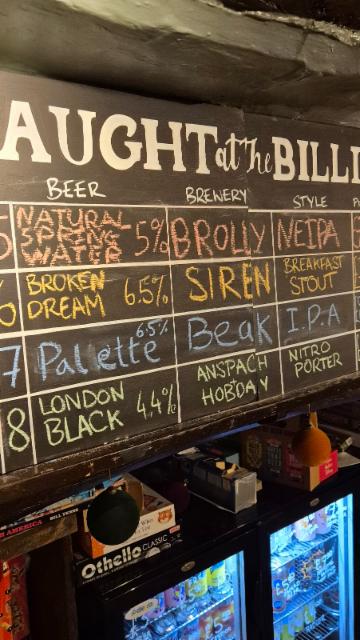 AUGHT at The BILL
BEER BREWERY STYLE
NATURAL SPRING WATER 5% BROLLY NEIPA
BROKEN DREAM 6.5% SIREN BREAKFAST STOUT
7 Palette 6.5% Beak I.P.A
8 LONDON BLACK 4.4% ANSPACH HOBDAY NITRO PORTER
AMERICA BILL
Othello CLASSIC